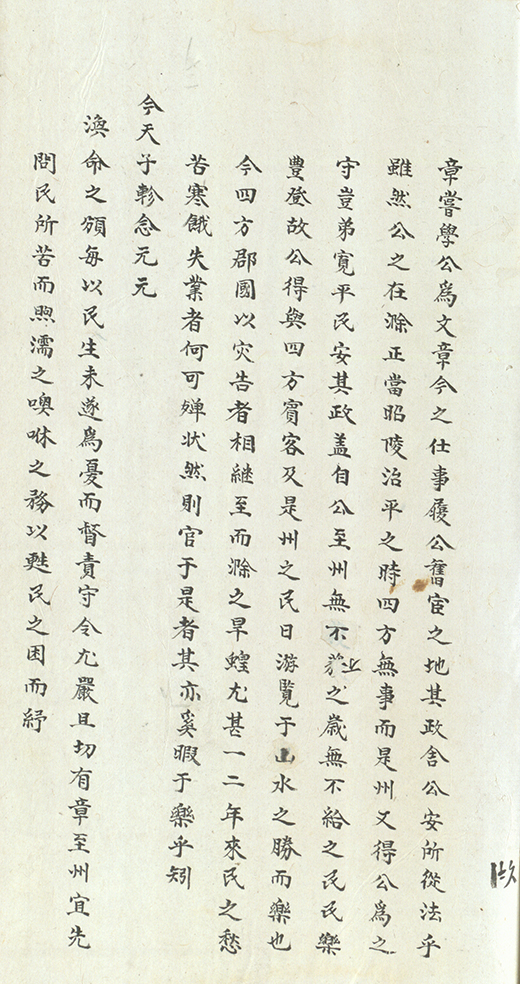 章嘗學公爲文章今之仕事履公舊宦之地其政舍公安所從法乎
雖然公之在滁正當昭陵治平之時四方無事而是州又得公爲之
守豈弟寬平民安其政盖自公至州無不之歳無不給之民民樂
豐登故公得與四方賓客及是州之民日游覧于山水之勝而樂也
今四方郡國以灾告者相継至而滁之旱蝗尤甚一二年來民之愁
苦寒餓失業者何可殫状然則官于是者其亦奚暇于樂乎矧
今天子軫念元元
渙命之頒每以民生未遂爲憂而督責守令尤嚴且切有章至州宜先
問民所苦而喣濡之噢咻之務以甦民之困而紓